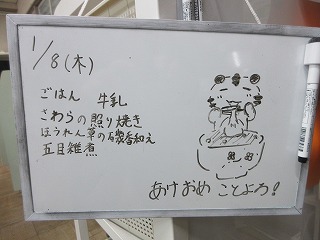 1/8(木)
ごはん 牛乳
さわらの照り焼き
ほうれん草の磯香和え
五目雑煮
あけおめ ことよろ!